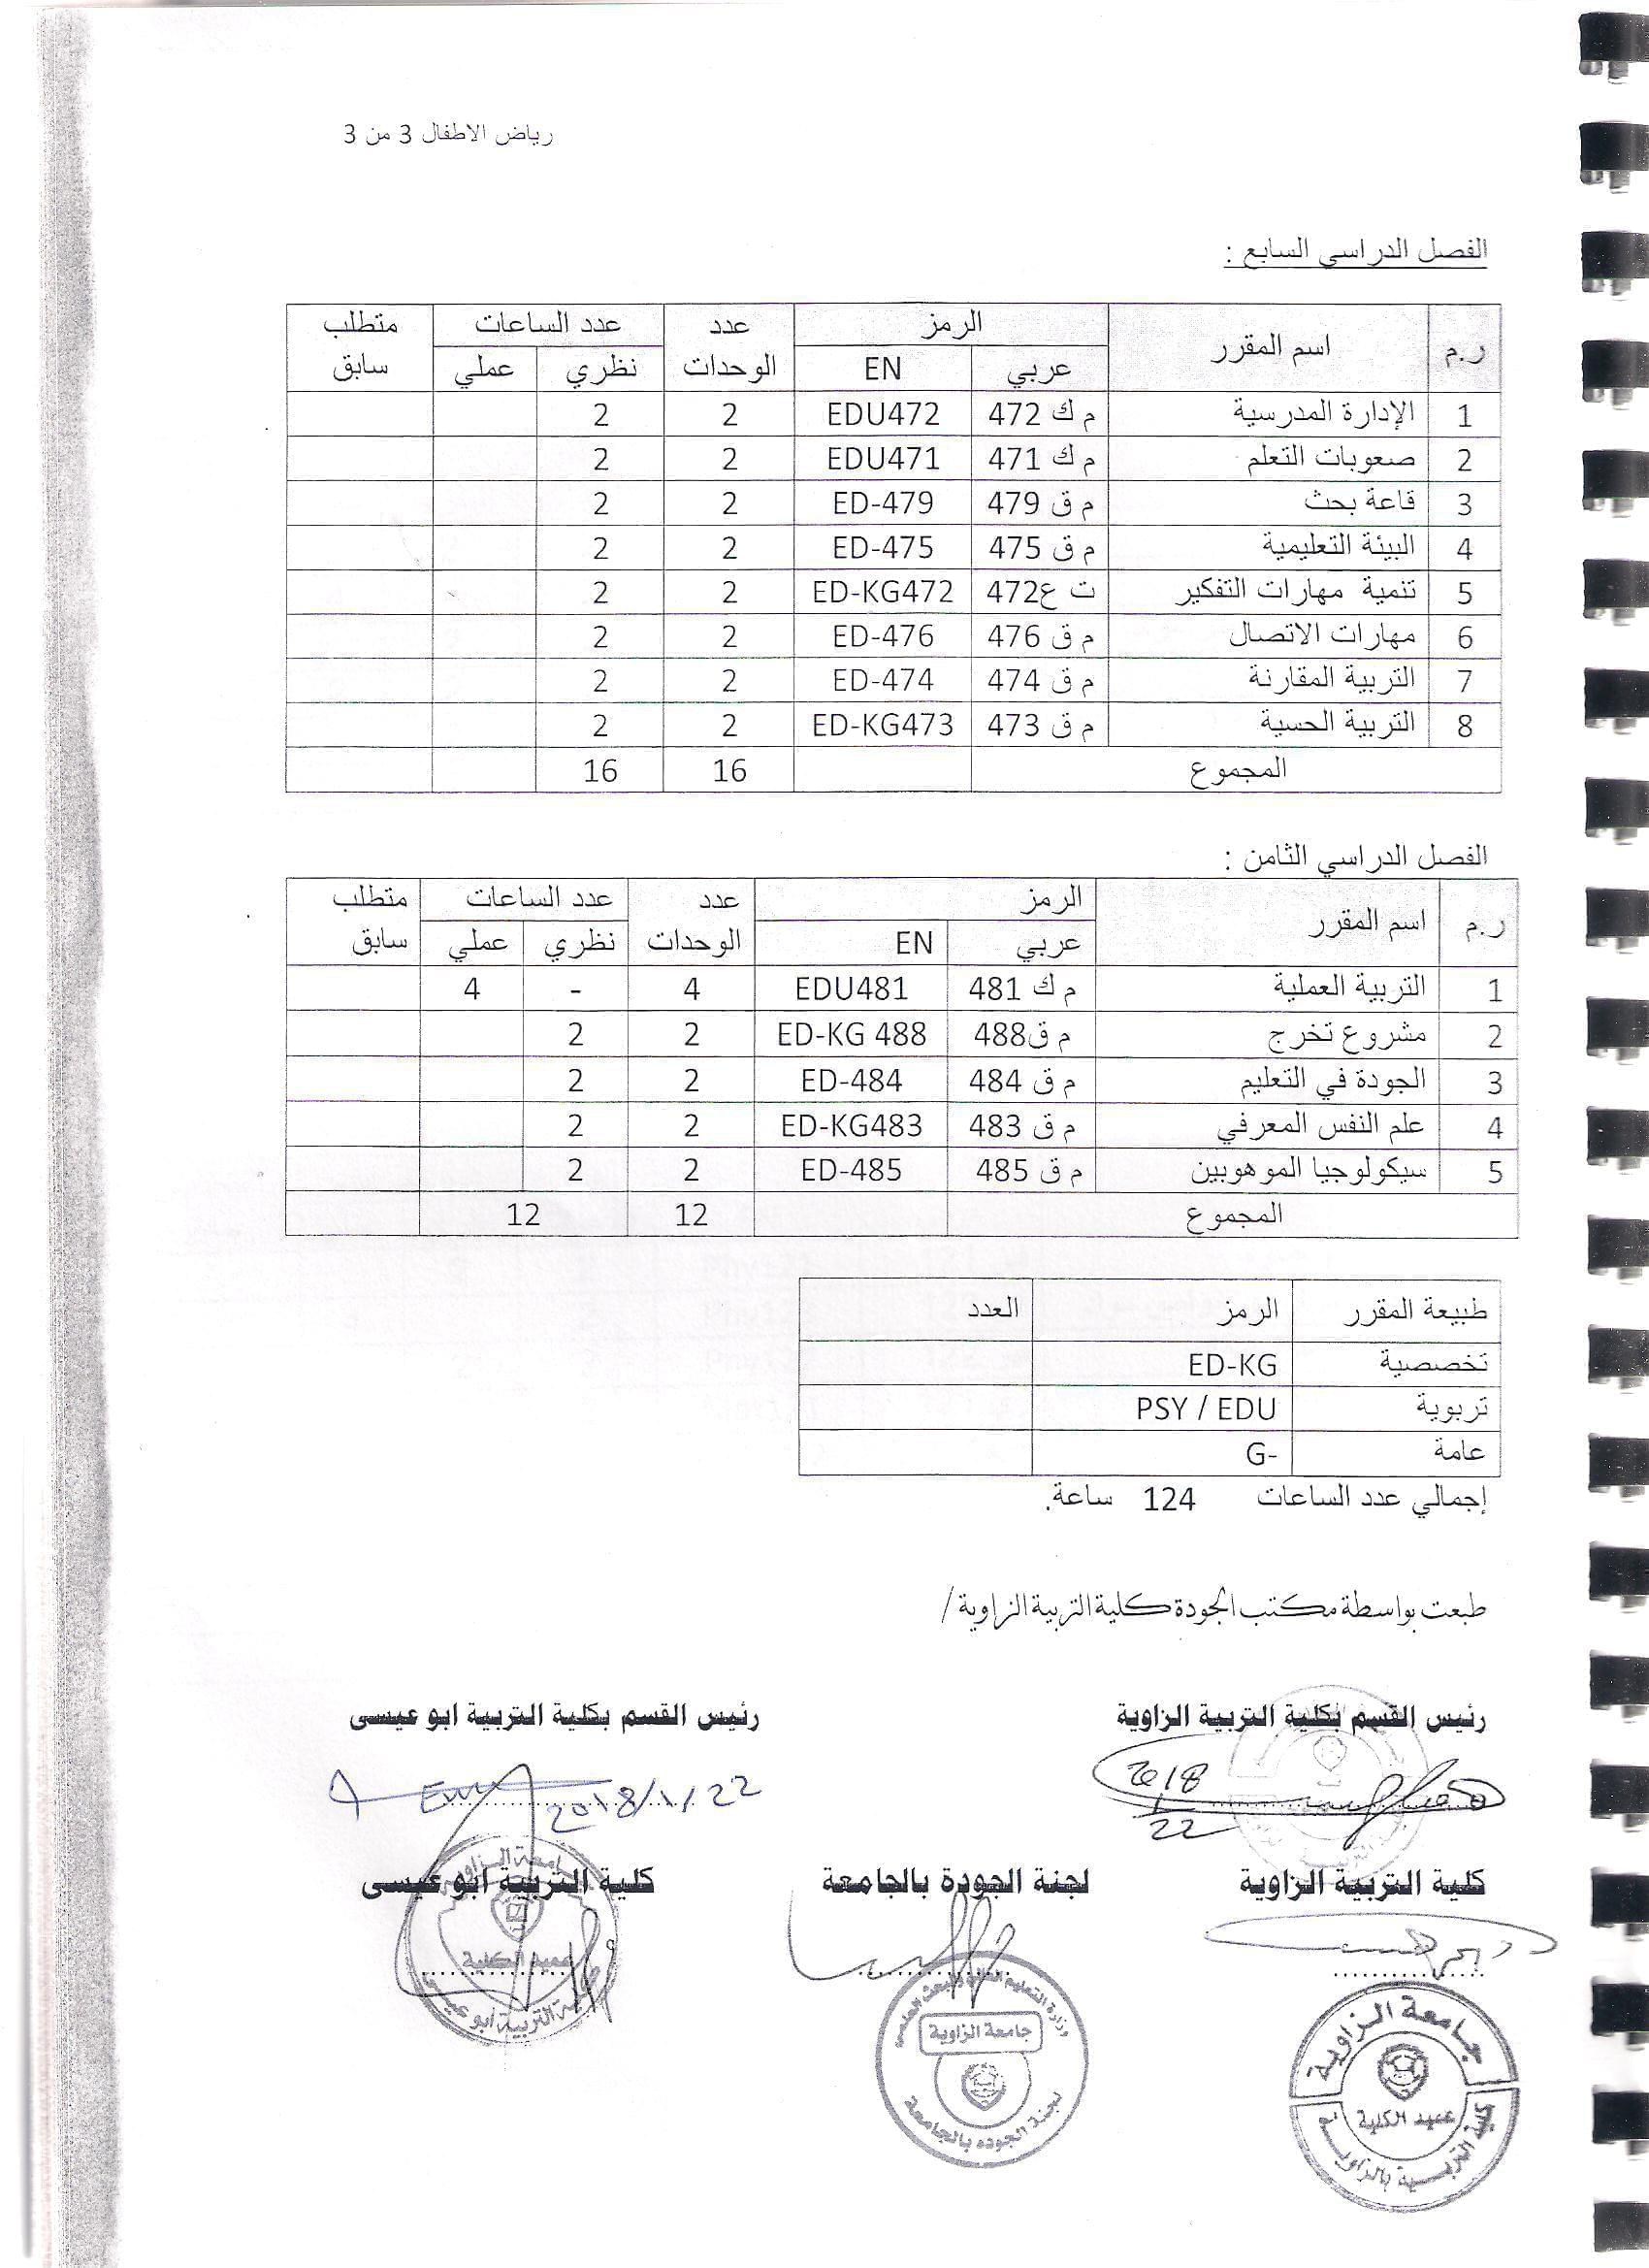 رياض الاطفال 3 من 3
الفصل الدراسي السابع :
ر.م | اسم المقرر | الرمز | عدد الوحدات | عدد الساعات | متطلب سابق
عربي | EN | نظري | عملي
1 | الإدارة المدرسية | م ك 472 | EDU472 | 2 | 2
2 | صعوبات التعلم | م ك 471 | EDU471 | 2 | 2
3 | قاعة بحث | م ق 479 | ED-479 | 2 | 2
4 | البيئة التعليمية | م ق 475 | ED-475 | 2 | 2
5 | تنمية مهارات التفكير | ت ع472 | ED-KG472 | 2 | 2
6 | مهارات الاتصال | م ق 476 | ED-476 | 2 | 2
7 | التربية المقارنة | م ق 474 | ED-474 | 2 | 2
8 | التربية الحسية | م ق 473 | ED-KG473 | 2 | 2
المجموع | 16 | 16
الفصل الدراسي الثامن :
ر.م | اسم المقرر | الرمز | عدد الوحدات | عدد الساعات | متطلب سابق
عربي | EN | نظري | عملي
1 | التربية العملية | م ك 481 | EDU481 | 4 | - | 4
2 | مشروع تخرج | م ق488 | ED-KG 488 | 2 | 2
3 | الجودة في التعليم | م ق 484 | ED-484 | 2 | 2
4 | علم النفس المعرفي | م ق 483 | ED-KG483 | 2 | 2
5 | سيكولوجيا الموهوبين | م ق 485 | ED-485 | 2 | 2
المجموع | 12 | 12
طبيعة المقرر | الرمز | العدد
تخصصية | ED-KG
تربوية | PSY / EDU
عامة | G-
إجمالي عدد الساعات 124 ساعة.
طبعت بواسطة مكتب الجودة كلية التربية الزاوية /
رئيس القسم بكلية التربية الزاوية
رئيس القسم بكلية التربية ابو عيسى
2018/1/22
2018/1/22
كلية التربية الزاوية
لجنة الجودة بالجامعة
كلية التربية ابو عيسى
جامعة الزاوية
عميد الكلية
كلية التربية بالزاوية
وزارة التعليم العالي والبحث العلمي
جامعة الزاوية
لجنة الجودة بالجامعة
جامعة الزاوية
عميد الكلية
كلية التربية ابو عيسى